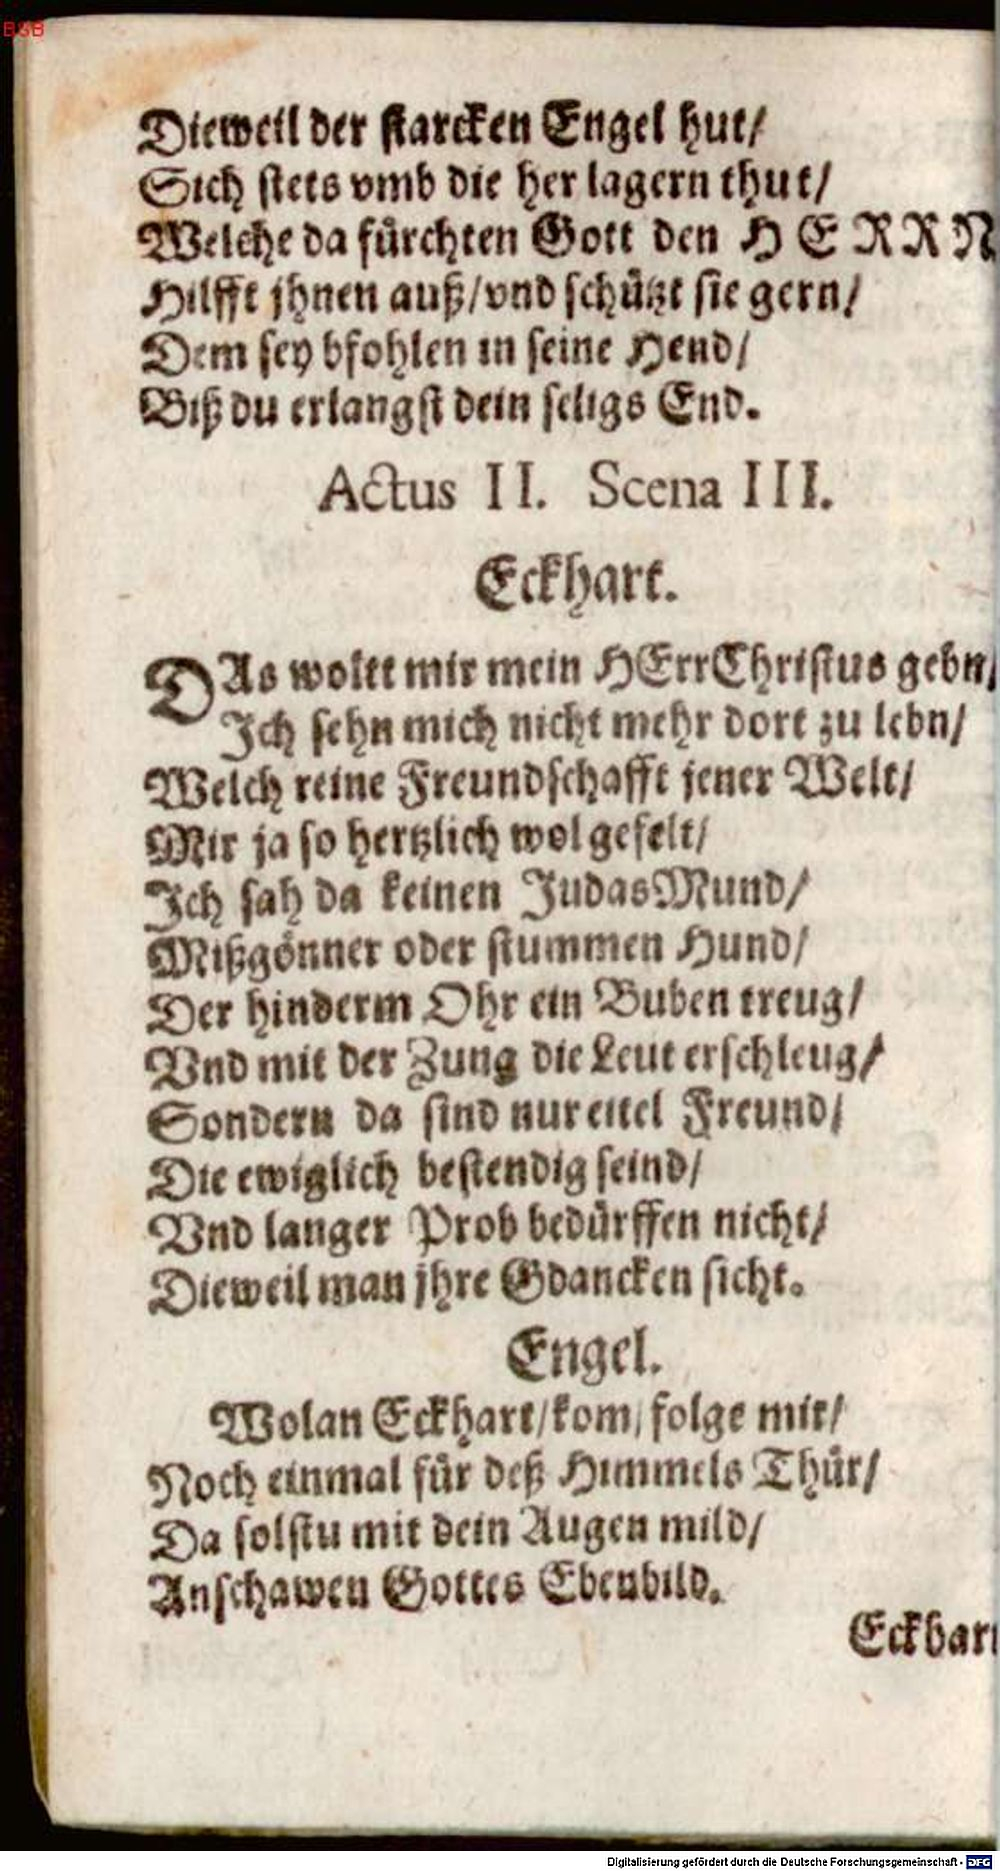 BSB
Dieweil der starcken Engel hut/
Sich stets vmb die her lagern thut/
Welche da fürchten Gott den HERRN
Hilfft jhnen auß/vnd schützt sie gern/
Dem sey bfohlen in seine Hend/
Biß du erlangst dein seligs End.
Actus II. Scena III.
Eckhart.
DAs woltt mir mein HErrChristus gebn/
Ich sehn mich nicht mehr dort zu lebn/
Welch reine Freundschafft jener Welt/
Mir ja so hertzlich wol gefelt/
Ich sah da keinen JudasMund/
Mißgönner oder stummen Hund/
Der hinderm Ohr ein Buben treug/
Vnd mit der Zung die Leut erschleug/
Sondern da sind nur eitel Freund/
Die ewiglich bestendig seind/
Vnd langer Prob bedürffen nicht/
Dieweil man jhre Gdancken sicht.
Engel.
Wolan Eckhart/kom/folge mir/
Noch einmal für deß Himmels Thür/
Da solstu mit dein Augen mild/
Anschawen Gottes Ebenbild.
Eckhart
Digitalisierung gefördert durch die Deutsche Forschungsgemeinschaft - DFG